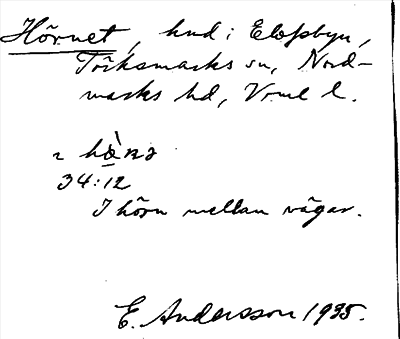 Hörnet, hmd i Elofsbyn,
Töcksmarks sn, Nord-
marks hd, Vrml l.
2 hæ̀ṇə
34:12
I hörn mellan vägar.
E. Andersson 1935.